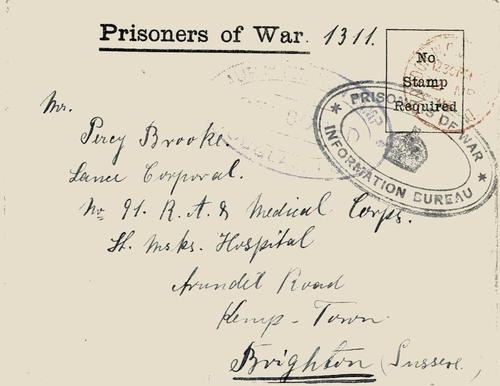 Prisoners of War. 1311.
No
Stamp
Required
* PRISONERS OF WAR *
INFORMATION BUREAU
Mr.
Percy Brooke.
Lance Corporal.
No 91. R. A. & Medical Corps.
St. Mks. Hospital
Arundel Road
Kemp-Town.
Brighton (Sussex.)